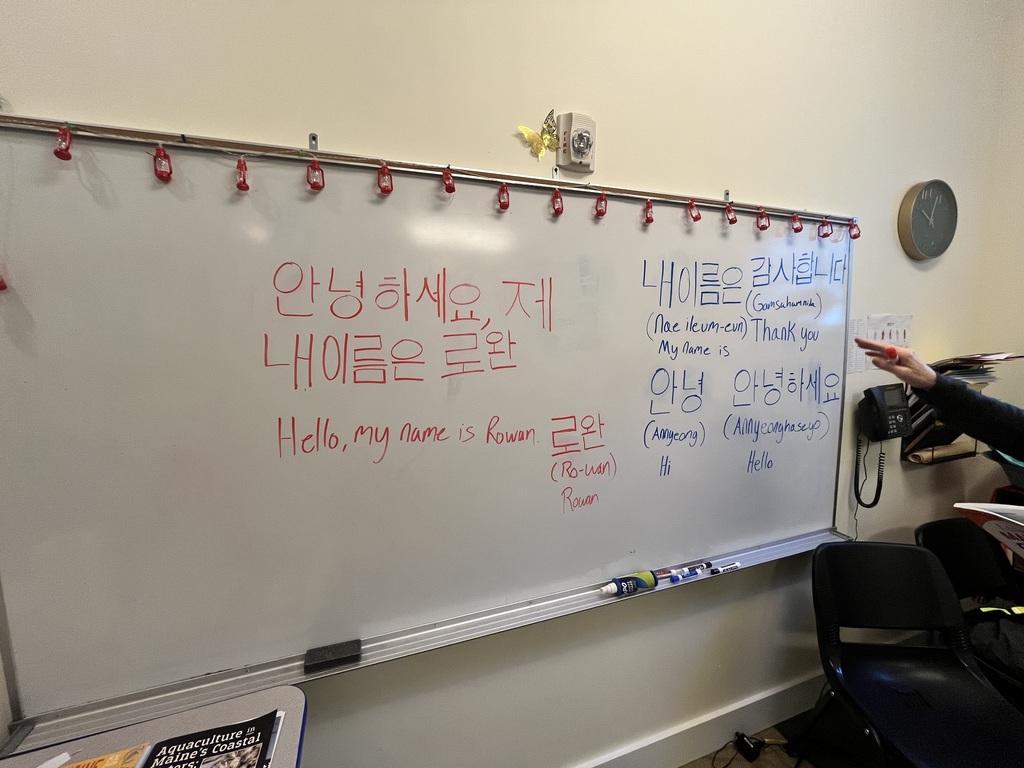 안녕하세요, 제
내이름은 로완
Hello, my name is Rowan.
로완
(Ro-wan)
Rowan
내이름은 감사합니다
(Gamsahamnida)
(Nae ileum-eun) Thank you
My name is
안녕 안녕하세요
(Annyeong) (Annyeonghaseyo)
Hi Hello
FIRE
Aquaculture in
Maine's Coastal